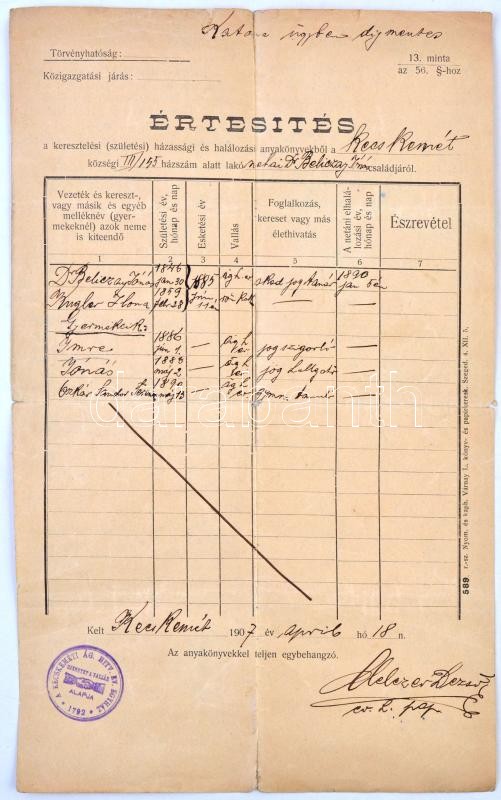 Katona ügyben díjmentes
Törvényhatóság:
13. minta
az 56. §-hoz
Közigazgatási járás:
ÉRTESITÉS
a keresztelési (születési) házassági és halálozási anyakönyvekből a Kecskemét
községi III/155 házszám alatt lakó néhai Dr Beliczay családjáról.
Vezeték és kereszt-, vagy másik és egyéb melléknév (gyermekeknél) azok neme is kiteendő
Születési év, hónap és nap
Esketési év
Vallás
Foglalkozás, kereset vagy más élethivatás
A netáni elhalálozási év, hónap és nap
Észrevétel
1 2 3 4 5 6 7
Dr Beliczay Jónás 1846 jan 30 1885 ág h ev akad jogtanár 1890 jan
Kugler Ilona 1859 febr 28 róm. kath — —
Gyermekeik:
Imre 1886 jún 1. — ág h ev jogszigorló —
Jónás 1888 máj 2 — ág h ev jog hallgató —
Oszkár Sándor 1890 máj 13 — ág h ev gymn. tanuló —
Kelt Kecskemét 1907 év április hó 18 n.
Az anyakönyvekkel teljen egybehangzó.
A KECSKEMÉTI ÁG. HITV. EV. EGYHÁZ
SZERETET A VALLÁS
ALAPJA
1792
Melczer Dezső
ev. l. pap.
589. r.-sz. Nyom. és kaph. Várnay L. könyv- és papirkeresk. Szeged. 4. XII. 5.
darabanth